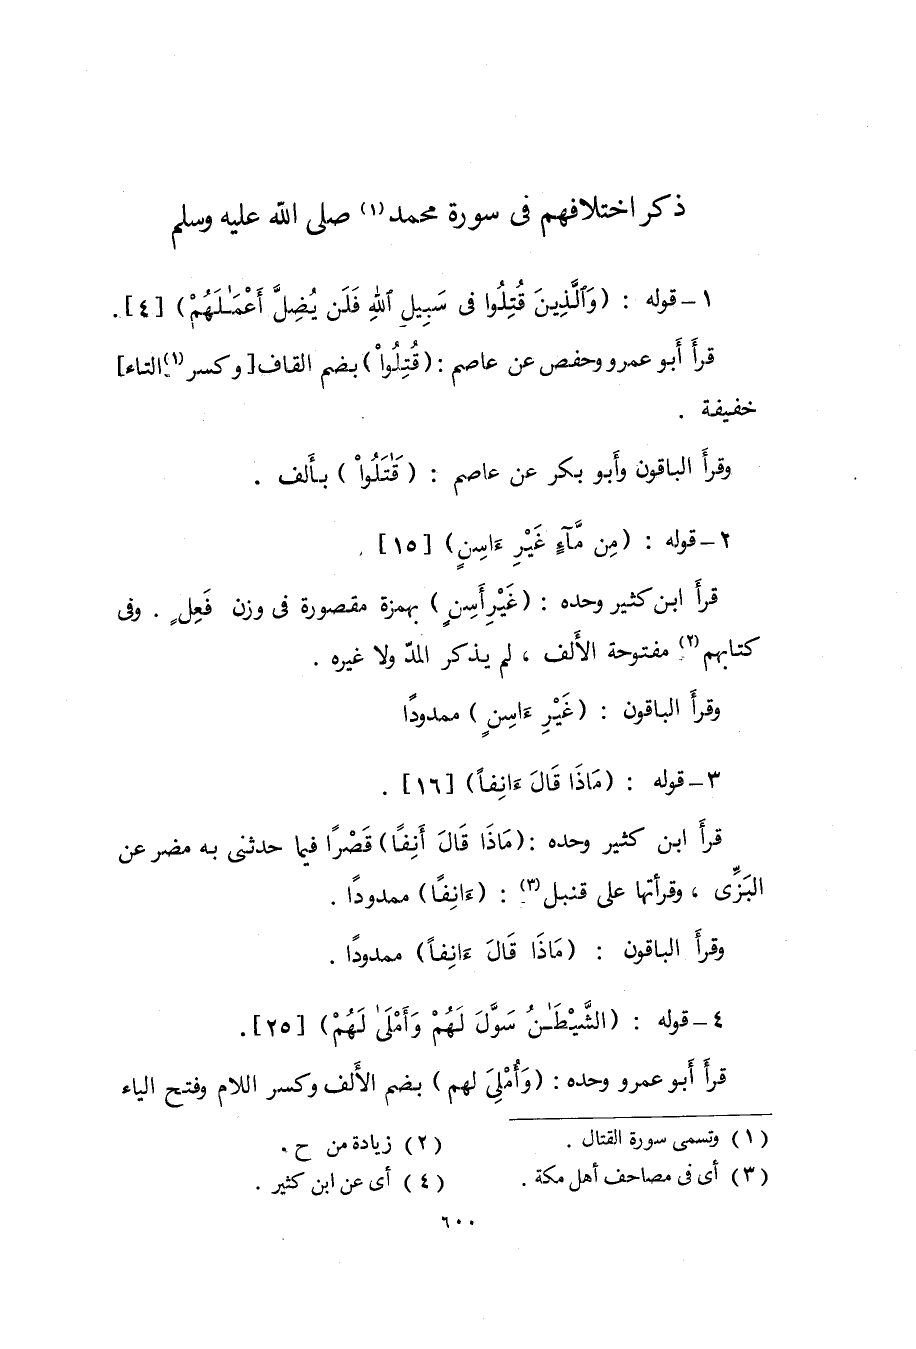 ذكر اختلافهم فى سورة محمد(١) صلى الله عليه وسلم
١ – قوله : (وَٱلَّذِينَ قُتِلُوا فى سَبِيلِ ٱللهِ فَلَن يُضِلَّ أَعْمَـٰلَهُمْ) [٤].
قرأ أَبو عمرو وحفص عن عاصم : (قُتِلُواْ) بضم القاف [وكسر(١) التاء]
خفيفة .
وقرأَ الباقون وأَبو بكر عن عاصم : ( قَٰتَلُواْ ) بـأَلف .
٢ – قوله : (مِن مَّآءٍ غَيْرِ ءَاسِنٍ) [١٥] .
قرأَ ابن كثير وحده : (غَيْرِ أَسِنٍ ) بهمزة مقصورة فى وزن فَعِلٍ . وفى
كتابهم(٢) مفتوحة الأَلف ، لم يذكر المدّ ولا غيره .
وقرأَ الباقون : (غَيْرِ ءَاسِنٍ ) ممدودًا
٣ – قوله : (مَاذَا قَالَ ءَانِفاً) [١٦] .
قرأَ ابن كثير وحده :(مَاذَا قَالَ أَنِفًا) قَصْرًا فيما حدثنى به مضر عن
البَزِّى ، وقرأتها على قنبل(٣) : (ءَانِفًا) ممدودًا .
وقرأَ الباقون : (مَاذَا قَالَ ءَانِفاً) ممدودًا .
٤ – قوله : (الشَّيْطَـٰنُ سَوَّلَ لَهُمْ وَأَمْلَىٰ لَهُمْ) [٢٥].
قرأَ أَبو عمرو وحده : (وَأُمْلِىَ لهم ) بضم الأَلف وكسر اللام وفتح الياء
(١) وتسمى سورة القتال . (٢) زيادة من ح .
(٣) أى فى مصاحف أهل مكة . (٤) أى عن ابن كثير .
٦٠٠